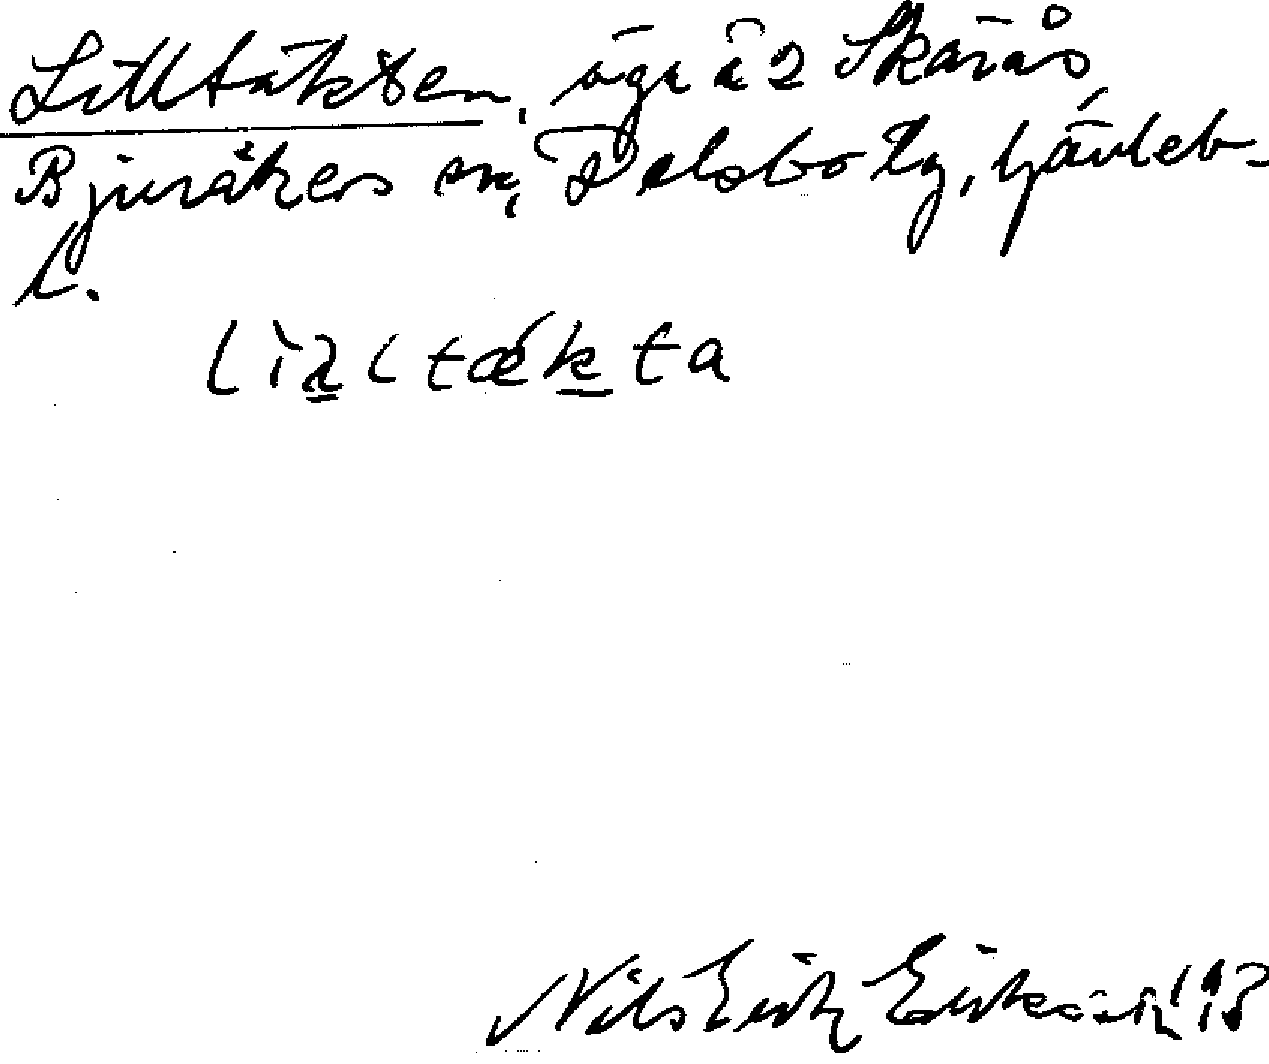 Lilltäkten, äga å 2 Skärås
Bjuråkers sn, Delsbo tg, Gävleb-
l.
lìꞎltǽkta
Nils Erik Eriksson